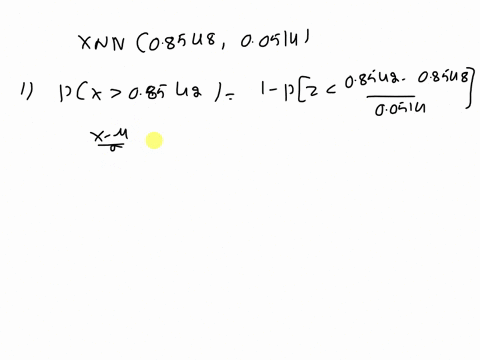 X~N (0.8548, 0.0514)
1) P( x > 0.8542 ) = 1 - P[ z < (0.8542 - 0.8548) / 0.0514 ]
x-μ / σ